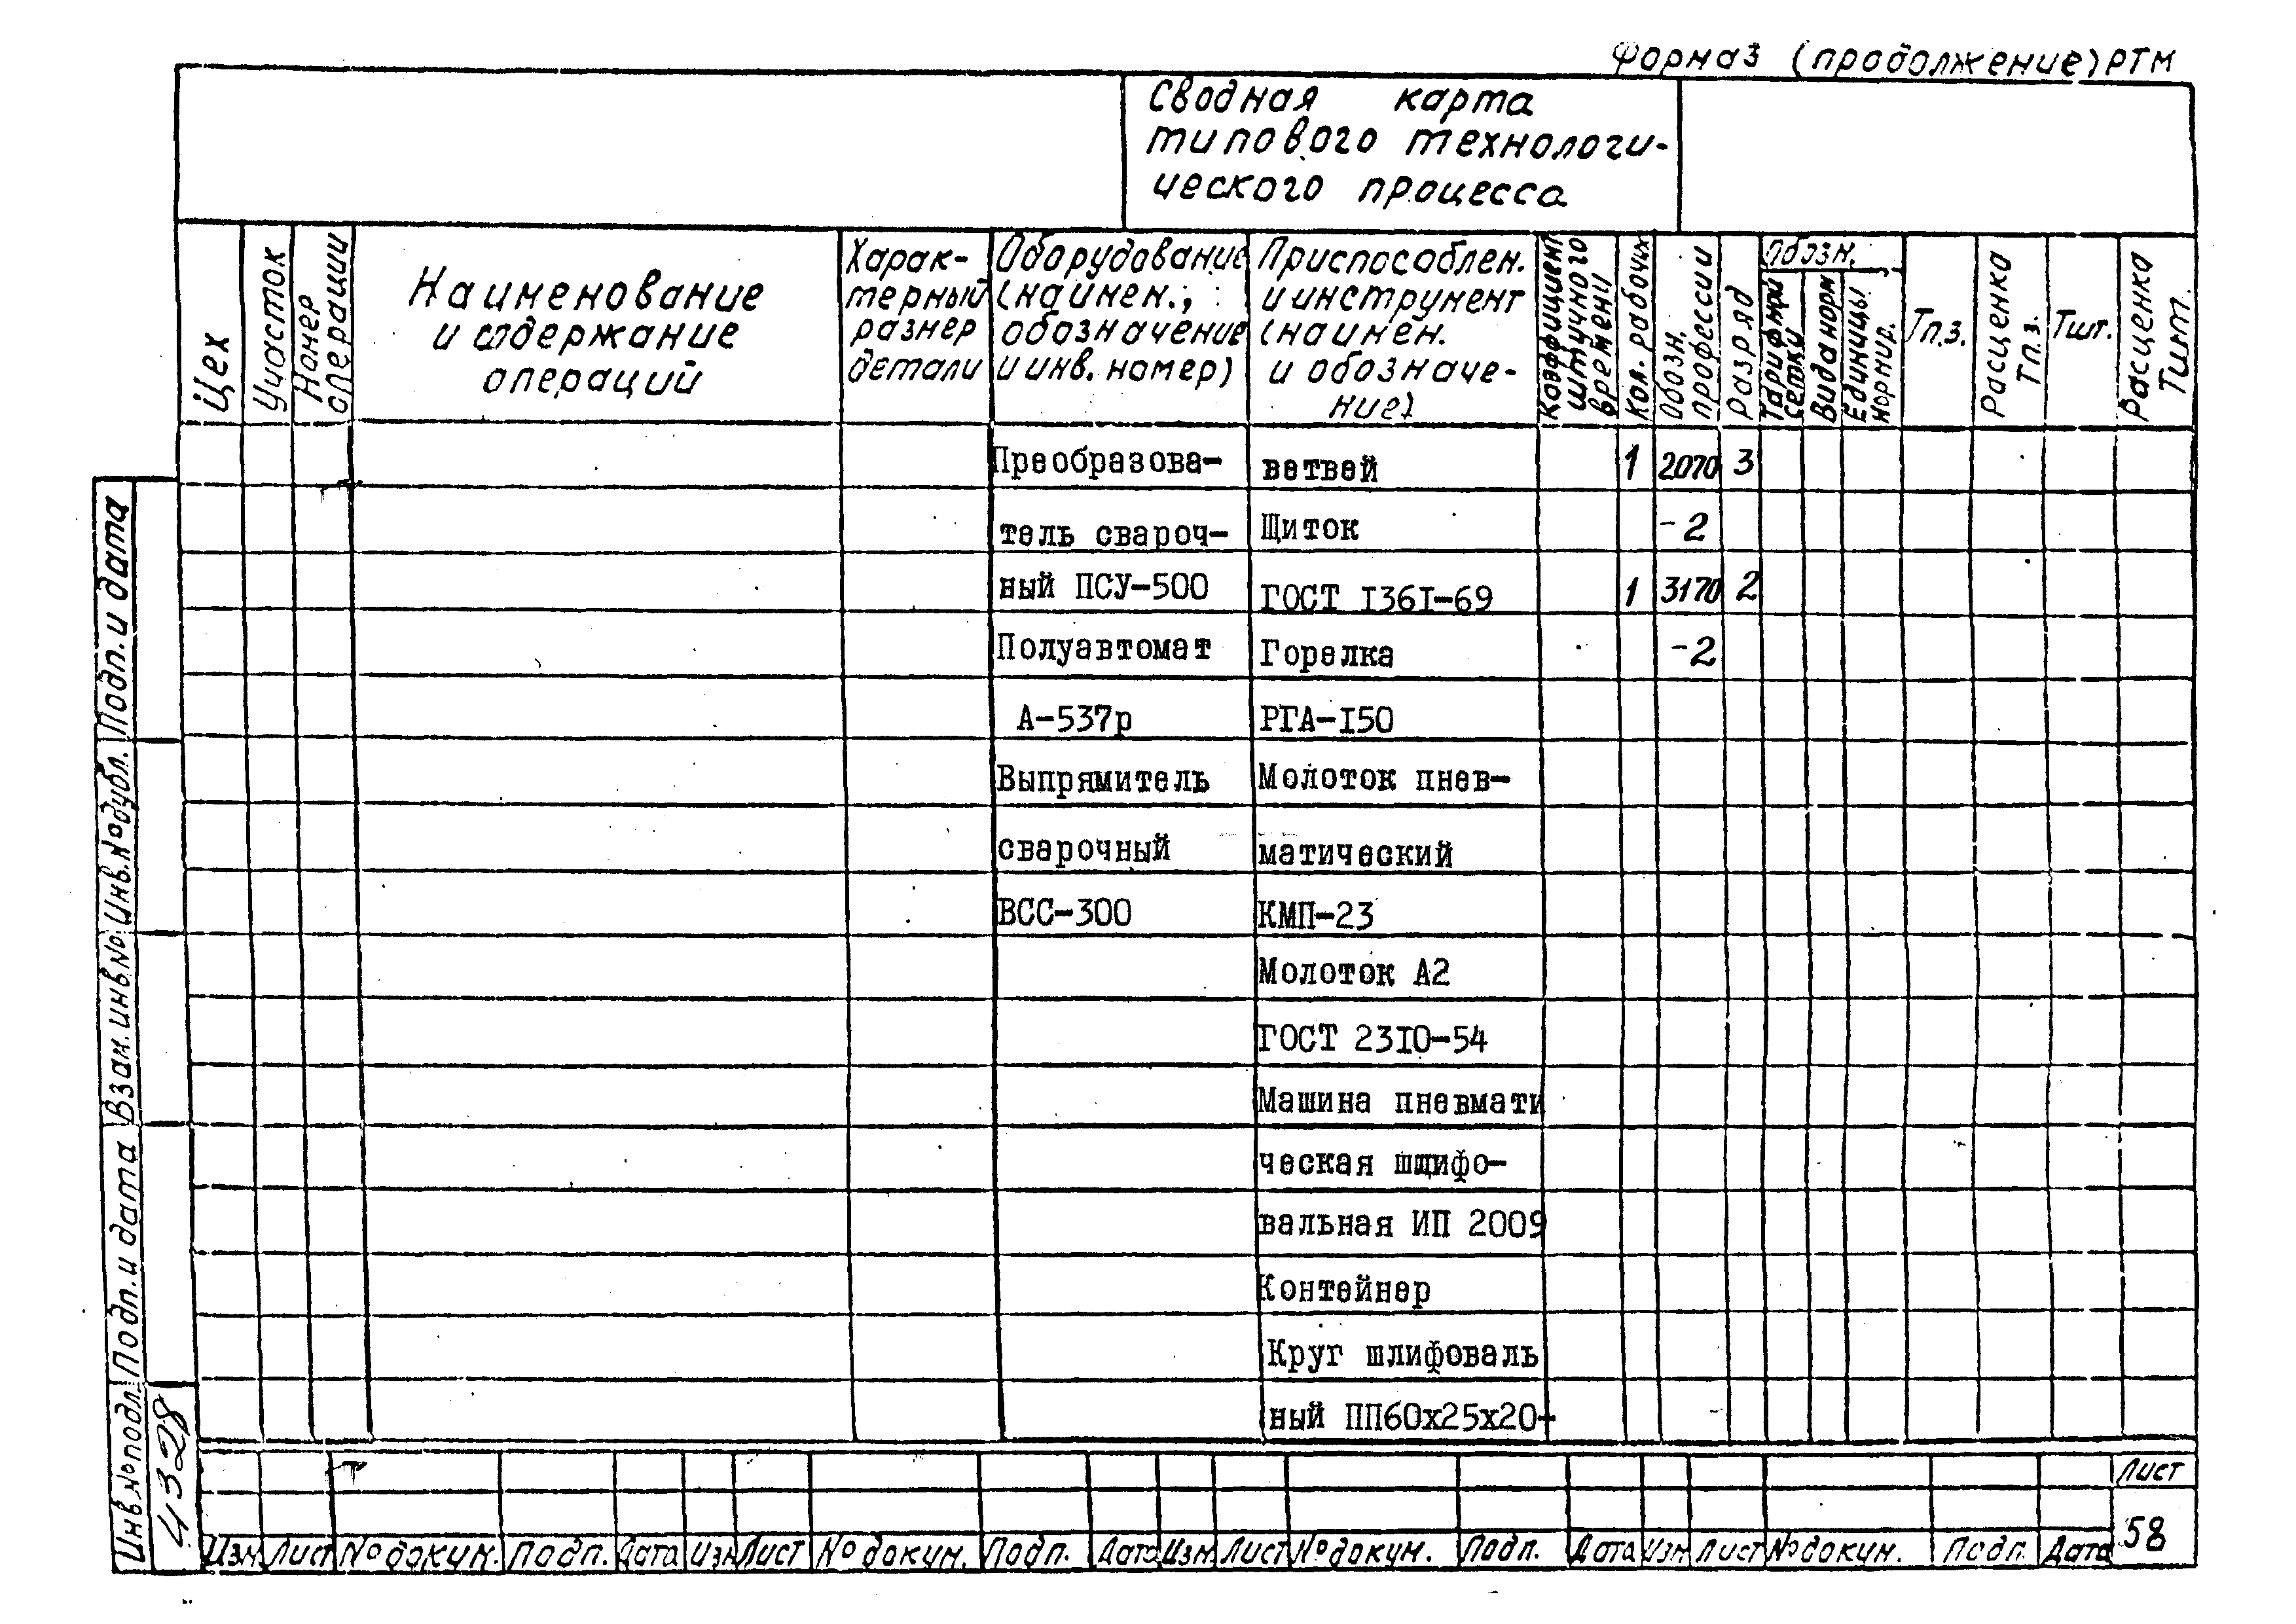 Форма 3 (продолжение) РТМ
Сводная карта
типового технологи-
ческого процесса
Цех
Участок
Номер
операции
Наименование
и содержание
операций
Харак-
терный
размер
детали
Оборудование
(наимен.,
обозначение
и инв. номер)
Приспособлен.
и инструмент
(наимен.
и обозначе-
ние)
Коэффициент
штучного
времени
Кол. рабочих
Обозн.
профессии
Разряд
Обозн.
Тарифной
сетки
Вида норм
Единицы
нормир.
Тп.з.
Расценка
Тп.з.
Тшт.
Расценка
Тшт
Преобразова- ветвей 1 2070 3
тель свароч- Щиток -2
ный ПСУ-500 ГОСТ I36I-69 1 3170 2
Полуавтомат Горелка -2
А-537р РГА-I50
Выпрямитель Молоток пнев-
сварочный матический
ВСС-300 КМП-23
Молоток А2
ГОСТ 23I0-54
Машина пневмати
ческая шлифо-
вальная ИП 2009
Контейнер
Круг шлифоваль
ный ПП60х25х20-
Подп. и дата
Инв.№дубл.
Взам.инв.№
Подп. и дата
Инв.№подл.
4328
Лист
58
Изм Лист № докум. Подп. Дата Изм Лист № докум. Подп. Дата Изм Лист № докум. Подп. Дата Изм Лист № докум. Подп. Дата